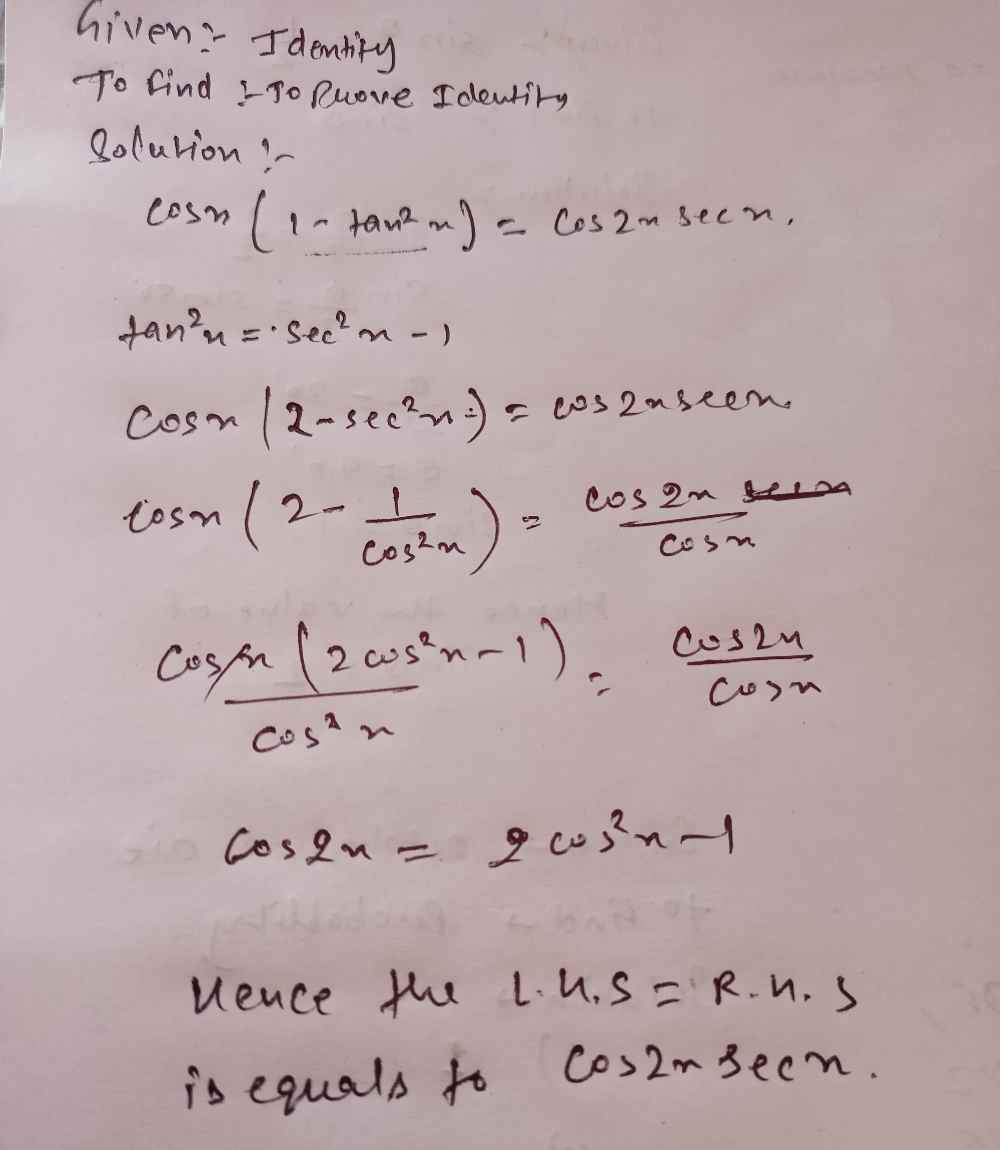 Given:- Identity
To find :- To Prove Identity
Solution :-
cosx (1 - tan²x) = cos2x secx.
tan²x = sec²x - 1
cosx (2 - sec²x) = cos2xsecx
cosx (2 - 1/cos²x) = cos2x/cosx
cosx (2cos²x - 1)/cos²x = cos2x/cosx
cos2x = 2cos²x - 1
Hence the L.H.S = R.H.S
is equals to cos2x secx.